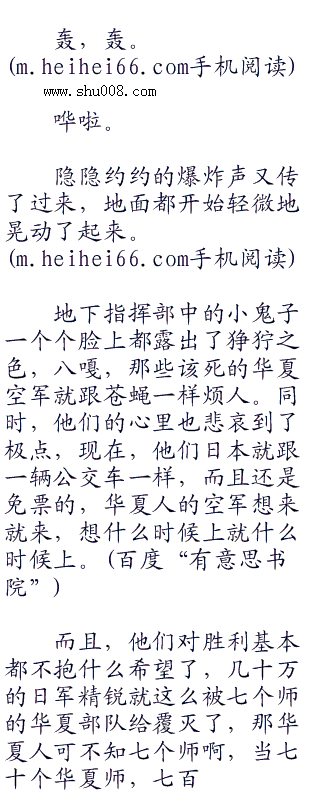 轰，轰。
(m.heihei66.com手机阅读)
www.shu008.com
哗啦。
隐隐约约的爆炸声又传
了过来，地面都开始轻微地
晃动了起来。
(m.heihei66.com手机阅读)
地下指挥部中的小鬼子
一个个脸上都露出了狰狞之
色，八嘎，那些该死的华夏
空军就跟苍蝇一样烦人。同
时，他们的心里也悲哀到了
极点，现在，他们日本就跟
一辆公交车一样，而且还是
免票的，华夏人的空军想来
就来，想什么时候上就什么
时候上。(百度“有意思书
院”)
而且，他们对胜利基本
都不抱什么希望了，几十万
的日军精锐就这么被七个师
的华夏部队给覆灭了，那华
夏人可不知七个师啊，当七
十个华夏师，七百